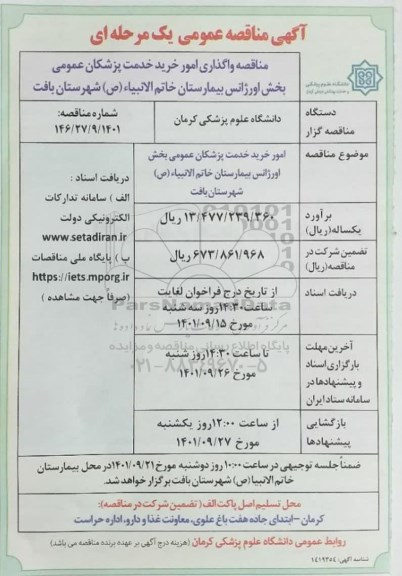 آگهی مناقصه عمومی یک مرحله ای
مناقصه واگذاری امور خرید خدمت پزشکان عمومی
بخش اورژانس بیمارستان خاتم الانبیاء (ص) شهرستان بافت
دستگاه
مناقصه گزار
دانشگاه علوم پزشکی کرمان
شماره مناقصه:
۱۴۶/۲۷/۹/۱۴۰۱
موضوع مناقصه
امور خرید خدمت پزشکان عمومی بخش
اورژانس بیمارستان خاتم الانبیاء (ص)
شهرستان بافت
برآورد
یکساله(ریال)
۱۳/۴۷۷/۲۳۹/۳۶۰ ریال
تضمین شرکت در
مناقصه(ریال)
۶۷۳/۸۶۱/۹۶۸ ریال
دریافت اسناد
از تاریخ درج فراخوان لغایت
ساعت ۱۴:۳۰ روز سه شنبه
مورخ ۱۴۰۱/۰۹/۱۵
آخرین مهلت
بارگزاری اسناد
و پیشنهادها در
سامانه ستاد ایران
تا ساعت ۱۴:۳۰ روز شنبه
مورخ ۱۴۰۱/۰۹/۲۶
بازگشایی
پیشنهادها
از ساعت ۱۲:۰۰ روز یکشنبه
مورخ ۱۴۰۱/۰۹/۲۷
دریافت اسناد :
الف ) سامانه تدارکات
الکترونیکی دولت
www.setadiran.ir
ب ) پایگاه ملی مناقصات
https://iets.mporg.ir
(صرفاً جهت مشاهده )
ParsNamadData
پایگاه اطلاع رسانی مناقصه و مزایده
۰۲۱-۸۸۳۴۹۶۷۰-۵
ضمناً جلسه توجیهی در ساعت ۱۰:۰۰ روز دوشنبه مورخ ۱۴۰۱/۰۹/۲۱ در محل بیمارستان
خاتم الانبیا (ص) شهرستان بافت برگزار خواهد شد.
محل تسلیم اصل پاکت الف ( تضمین شرکت در مناقصه):
کرمان – ابتدای جاده هفت باغ علوی، معاونت غذا و دارو، اداره حراست
روابط عمومی دانشگاه علوم پزشکی کرمان (هزینه درج آگهی بر عهده برنده مناقصه می باشد)
شناسه آگهی: ۱۴۱۹۳۵۴